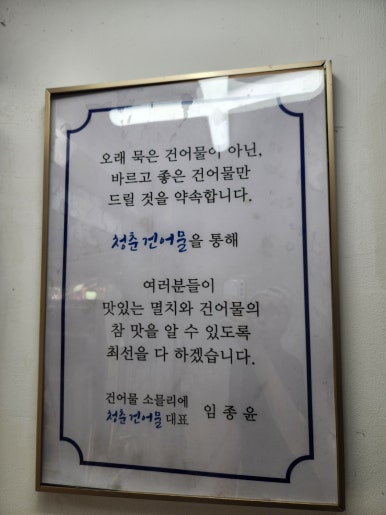 오래 묵은 건어물이 아닌,
바르고 좋은 건어물만
드릴 것을 약속합니다.
청춘건어물을 통해
여러분들이
맛있는 멸치와 건어물의
참 맛을 알 수 있도록
최선을 다 하겠습니다.
건어물 소믈리에
청춘건어물 대표 임종윤